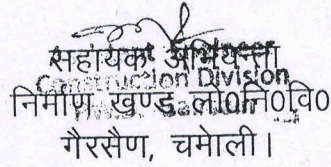 सहायक अभियन्ता
Construction Division
निर्माण खण्ड लो0नि0वि0
गैरसैण, चमोली।